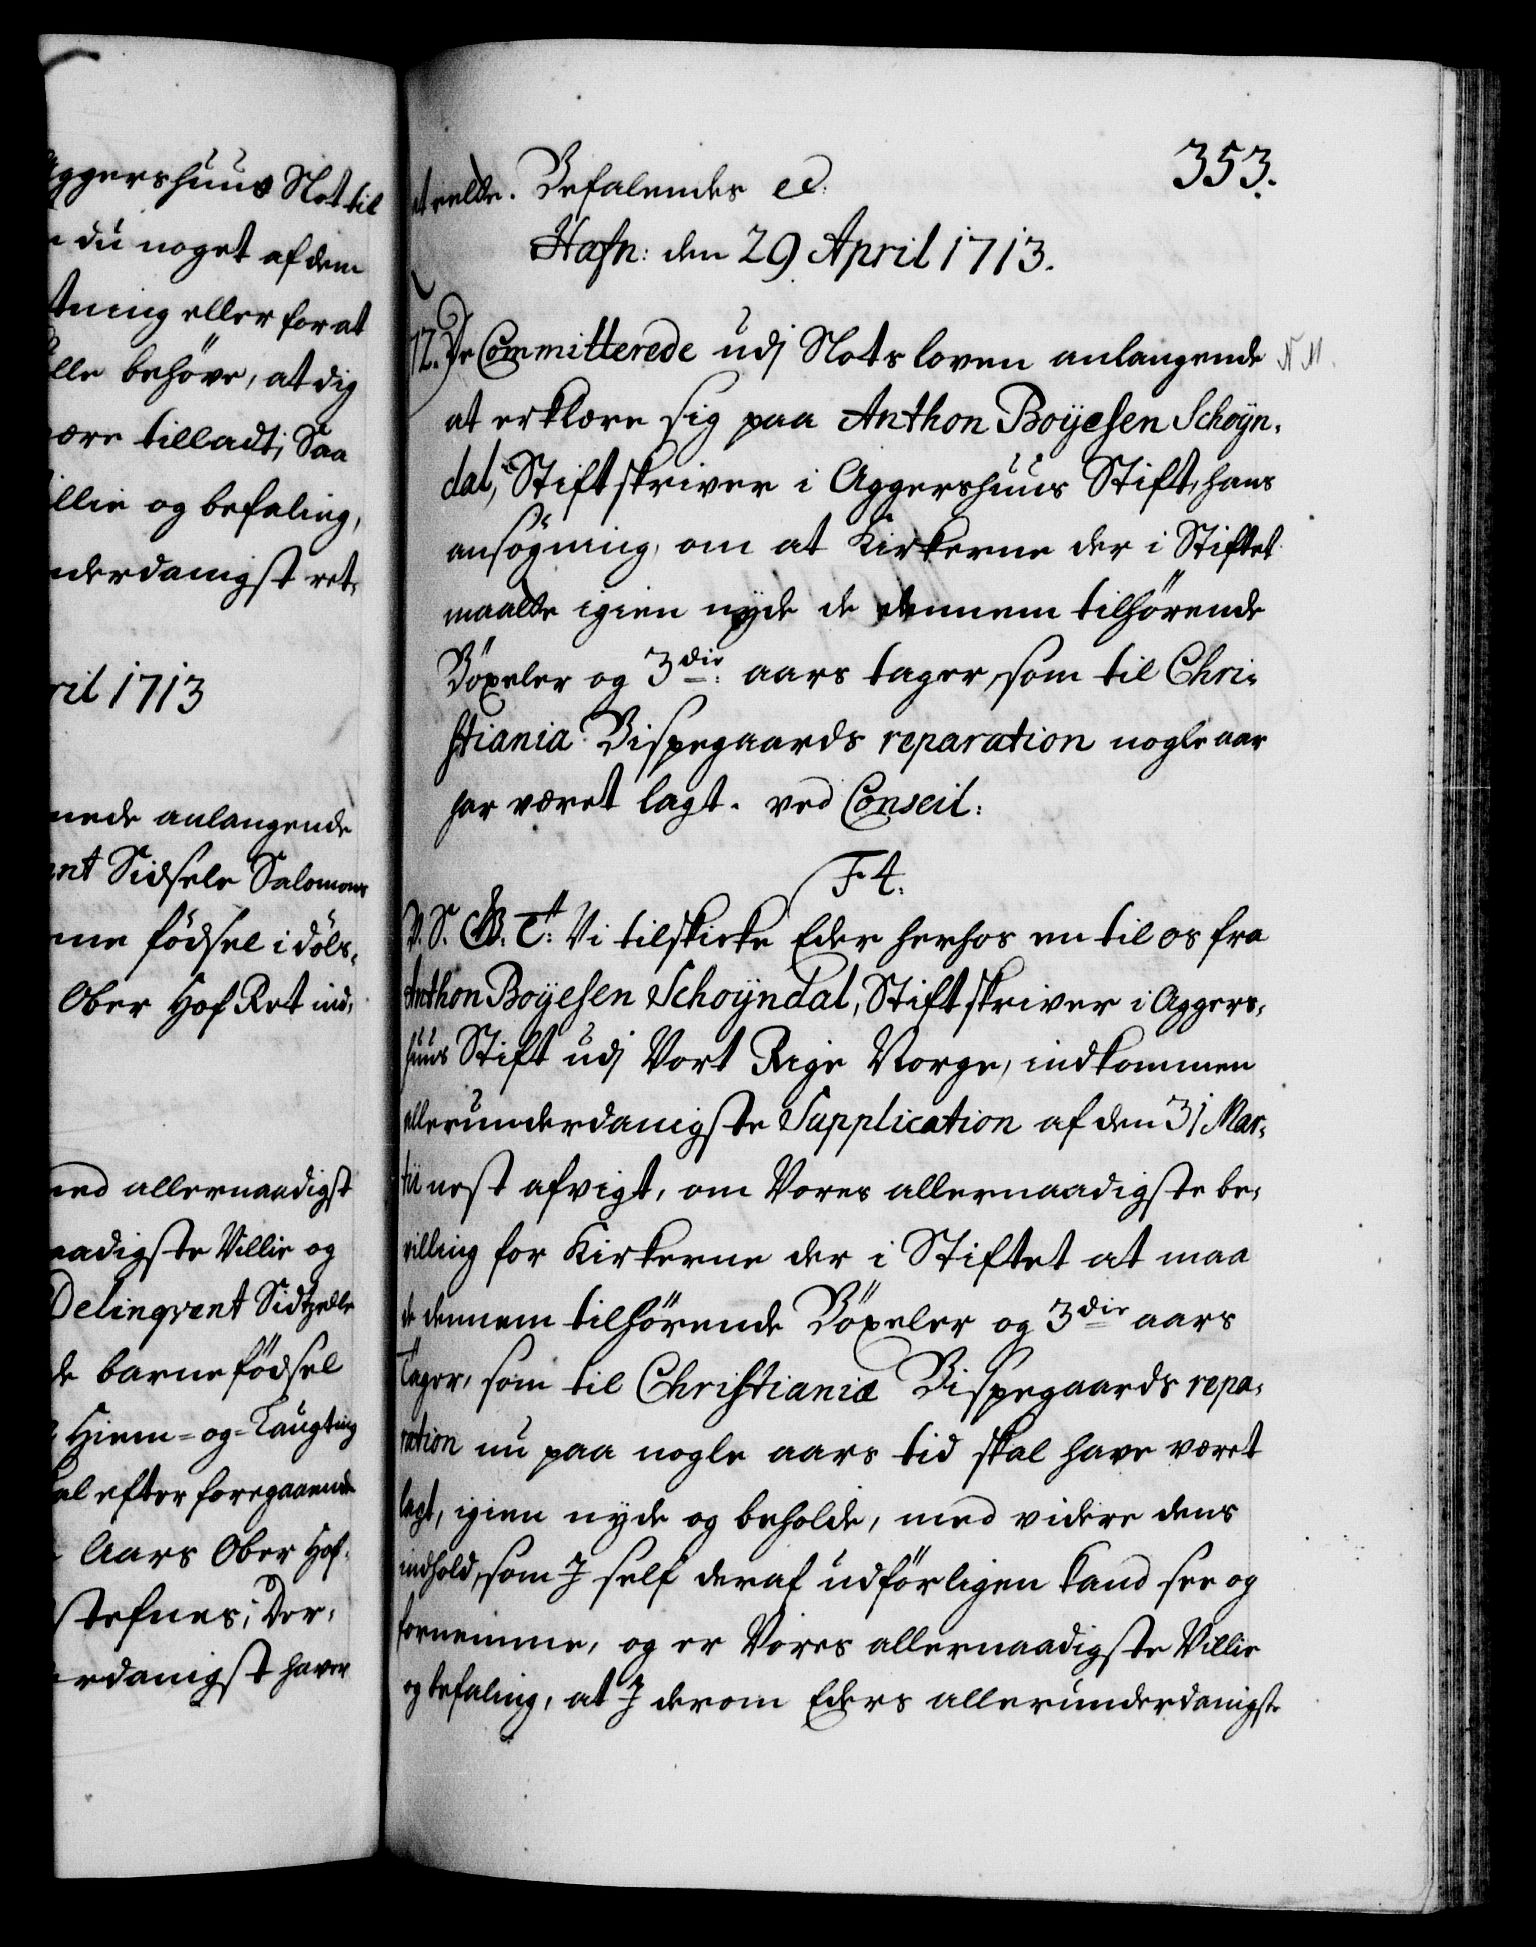 Aggershuus Slot til
du noget af dem
tning eller for at
lle behöve, at dig
ære tilladt; Saa
illie og befaling,
nderdanigst ret,
ril 1713
nede anlangende
ent Sidsele Salomons
nne födsel i döls,
Ober Hof Ret ind,
ned allernaadigst
aadigste Villie og
Delinqvent Sidtzelle
de barne födsel
Hiem-og-Laugting
al efter foregaaende
Aars Ober Hof,
stefnes; Der,
erdanigst haver
353.
at rette. Befalendes ec:
Hafn: den 29 April 1713.
72. De Committerede udj Slots loven anlangende N M.
at erklære sig paa Anthon Boyesen Schöyn,
dal, Stiftskriver i Aggershuus Stift, hans
ansögning, om at Kirkerne der i Stiftet
maatte igien nyde de dennem tilhörende
Böxeler og 3die: aars tager, som til Chri,
stiania Bispegaards reparation nogle aar
har været lagt. ved Conseil:
F 4.
V. S. G. T: Vi tilskicke Eder herhos en til os fra
Anthon Boyesen Schoyndal, Stiftskriver i Aggers,
huus Stift udj Vort Rige Norge, indkommen
allerunderdanigste Supplication af den 31 Mar,
tii nest afvigt, om Vores allernaadigste be,
villing for Kirkerne der i Stiftet at maa
de dennem tilhörende Böxeler og 3die aars
Tager, som til Christiania Bispegaards repa,
ration nu paa nogle aars tid skal have været
lagt, igien nyde og beholde, med videre dens
indhold, som J self deraf udförligen kand see og
fornemme, og er Vores allernaadigste Villie
og befaling, at J derom Eders allerunderdanigste